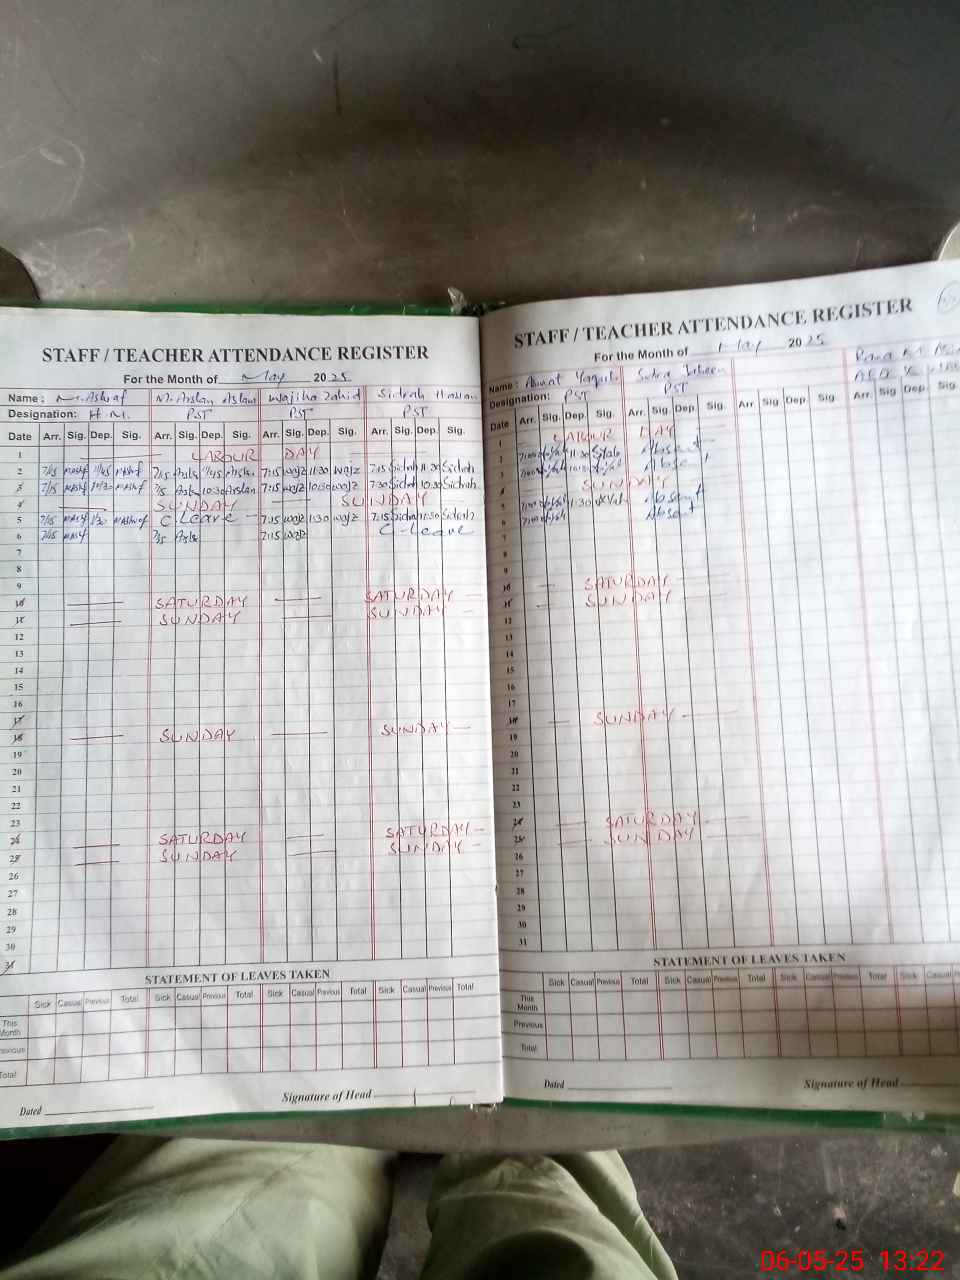 STAFF / TEACHER ATTENDANCE REGISTER
For the Month of May 2025
Name : M. Ashraf M. Arslan Aslam Wajiha Zahid Sidrah Hassan
Designation: H M. PST PST PST
Date Arr. Sig. Dep. Sig. Arr. Sig. Dep. Sig. Arr. Sig. Dep. Sig. Arr. Sig. Dep. Sig.
1 LABOUR DAY
2 7/15 11/45 7/15 11/45 7:15 wajz 11:30 wajz 7:15 Sidrah 11:30 Sidrah
3 7/15 10/30 7/15 10:30 Arslan 7:15 wajz 10:30 wajz 7:30 Sidrah 10:30 Sidrah
4 SUNDAY SUNDAY
5 7/15 1/30 C Leave 7:15 wajz 1:30 wajz 7:15 Sidrah 1:30 Sidrah
6 7/15 7:15 wajz C-leave
7
8
9
10 SATURDAY SATURDAY
11 SUNDAY SUNDAY
12
13
14
15
16
17
18 SUNDAY SUNDAY
19
20
21
22
23
24 SATURDAY SATURDAY
25 SUNDAY SUNDAY
26
27
28
29
30
31
STATEMENT OF LEAVES TAKEN
Sick Casual Previous Total Sick Casual Previous Total Sick Casual Previous Total Sick Casual Previous Total
This Month
Previous
Total
Dated Signature of Head
STAFF / TEACHER ATTENDANCE REGISTER
For the Month of May 2025
Name :
Designation: PST PST
Date Arr. Sig. Dep. Sig. Arr. Sig. Dep. Sig. Arr. Sig. Dep. Sig. Arr. Sig. Dep.
1 LABOUR DAY
2 11:30 Absent
3 Absent
4 SUNDAY
5 1:30 Absent
6 Absent
7
8
9
10 SATURDAY
11 SUNDAY
12
13
14
15
16
17
18 SUNDAY
19
20
21
22
23
24 SATURDAY
25 SUNDAY
26
27
28
29
30
31
STATEMENT OF LEAVES TAKEN
Sick Casual Previous Total Sick Casual Previous Total Sick Casual Previous Total Sick Casual
This Month
Previous
Total
Dated Signature of Head
06-05-25 13:22